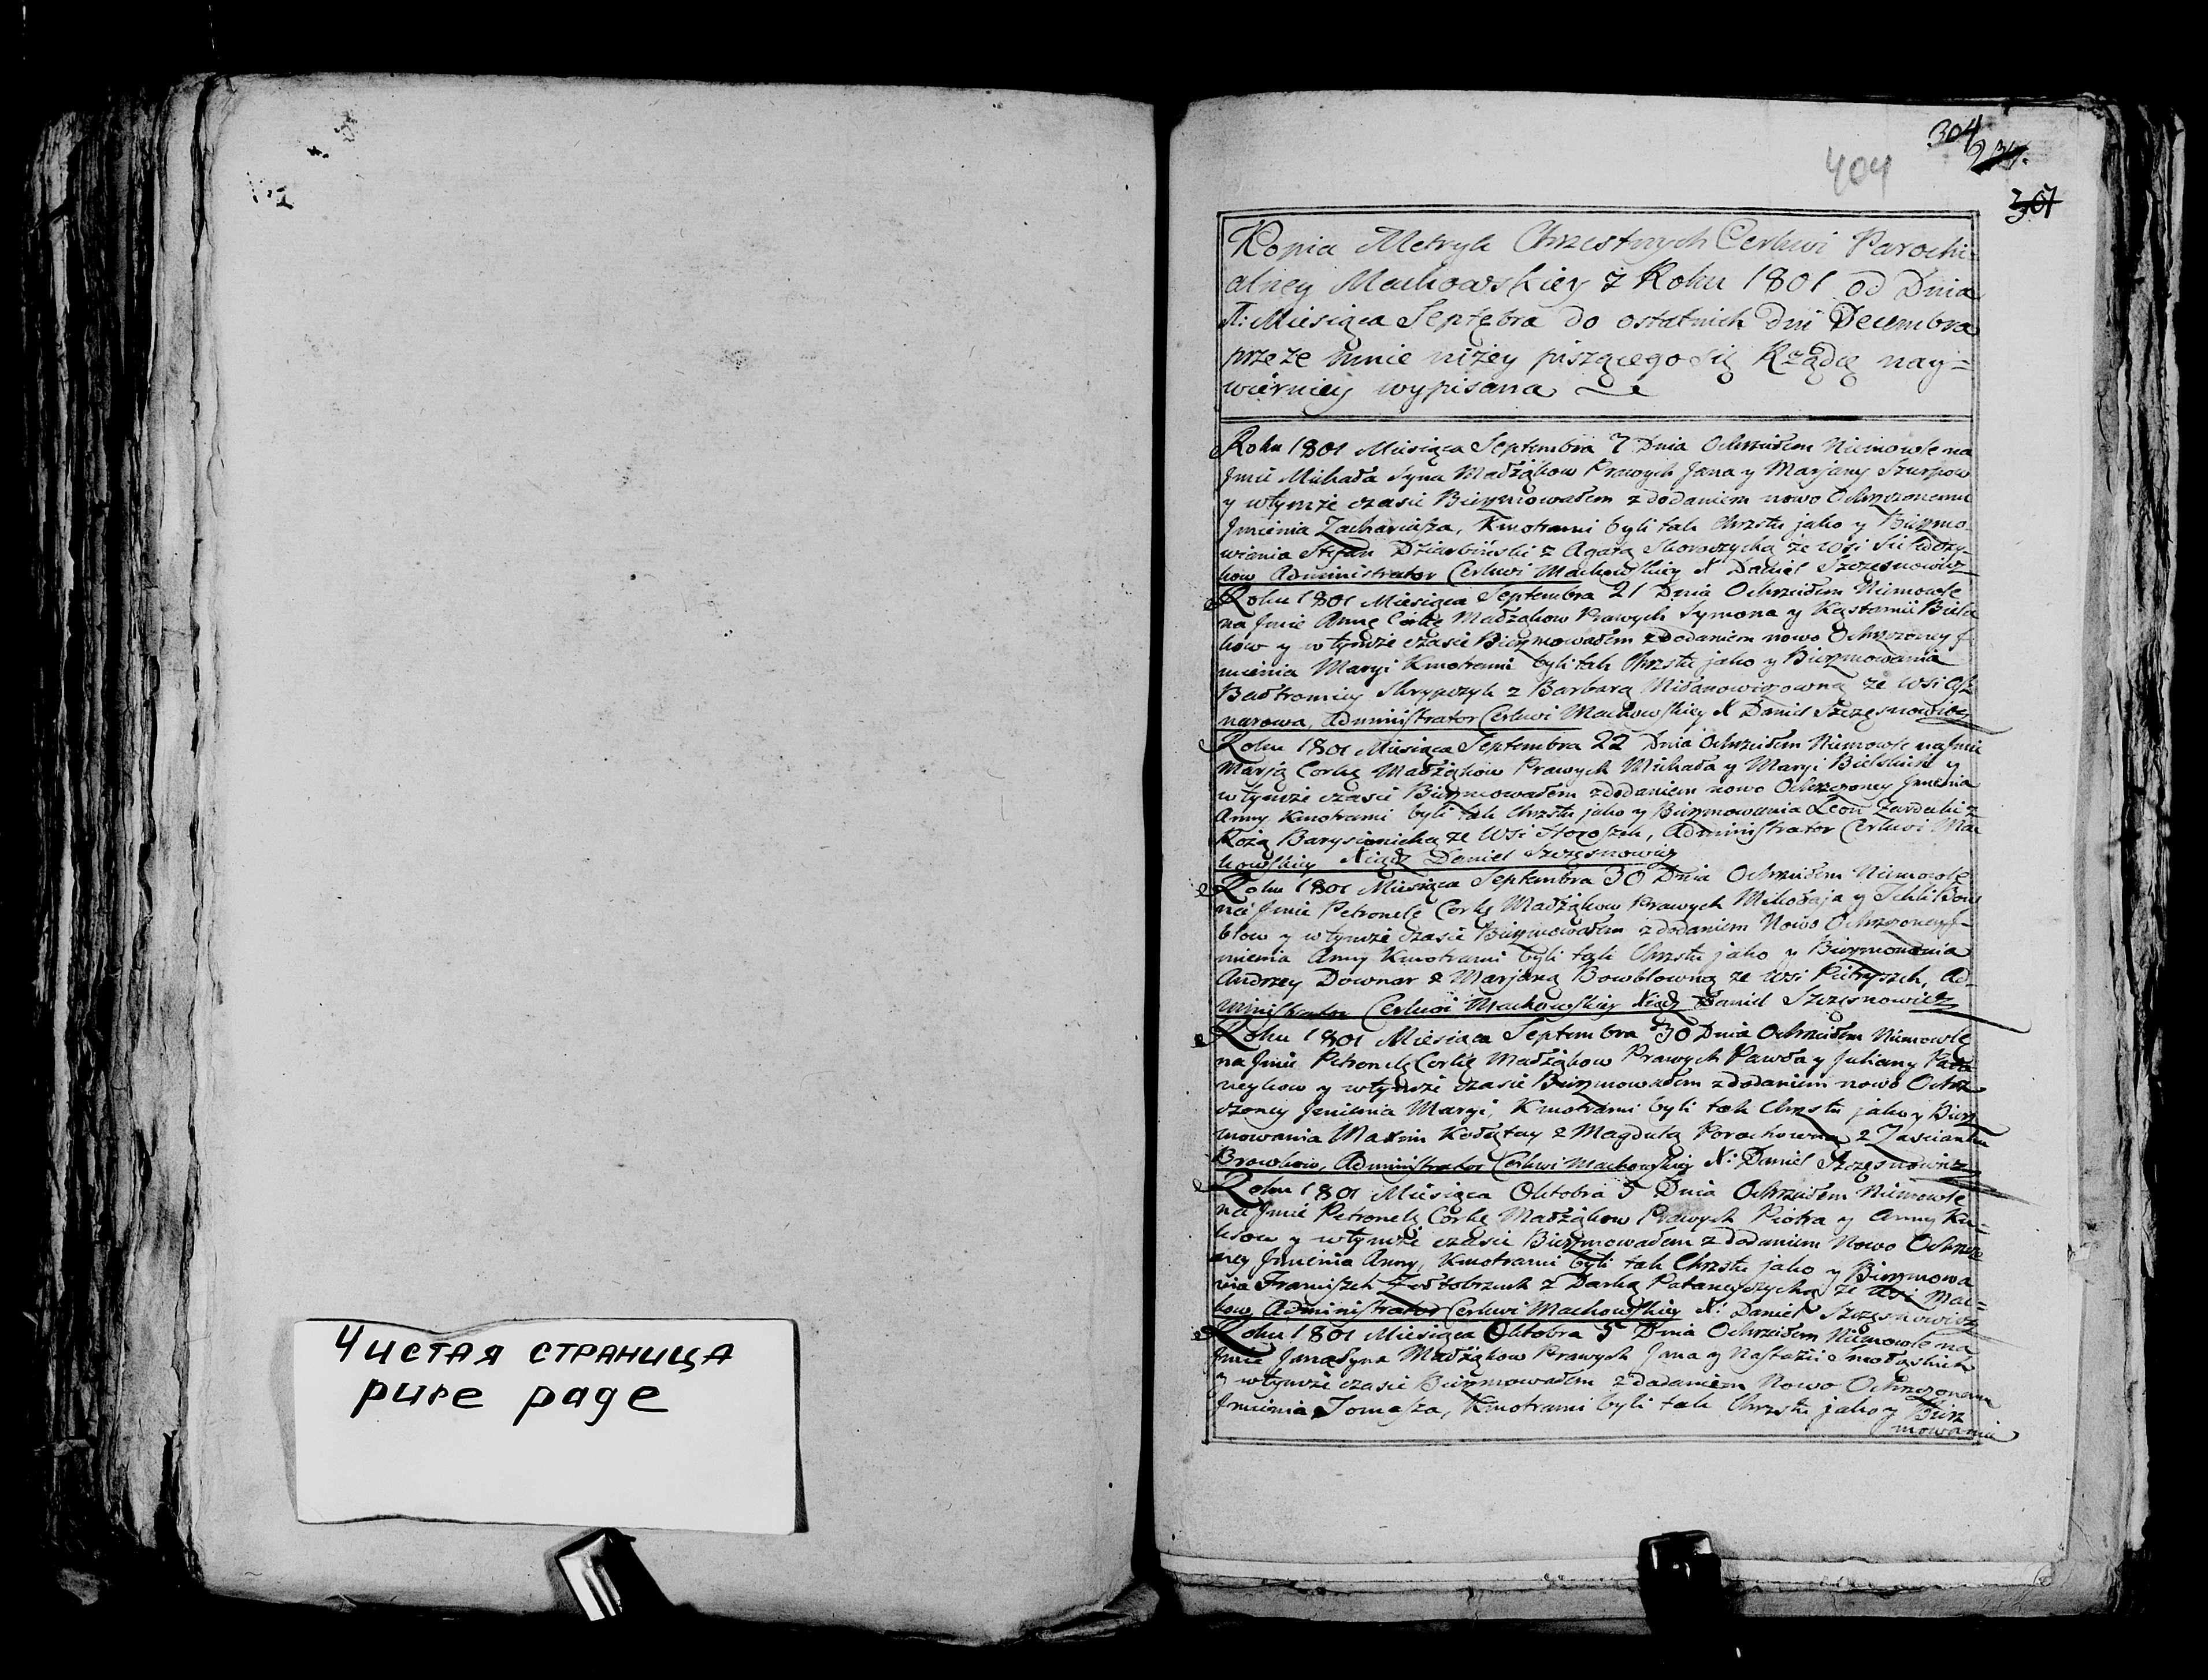 Чистая страница
pure page
304
404
307
Kopia Metryk Chrzestnych Cerkwi Parochi-
alney Machowskiey z Roku 1801 od Dnia
Miesiąca Septębra do ostatnich dni Decembra
przeze mnie niżey piszącego się Rządcę nay=
wierniey wypisana
Roku 1801 Miesiąca Septembra 7 Dnia Ochrzciłem Niemowle na
Jmie Michała Syna Małżąkow Prawych Jana y Marjany Szurpow
y wtymże czasie Bierzmowałem z dodaniem nowo Ochrzczonemu
Jmienia Zachariasza, Kmotrami byli tak Chrztu jako y Bierzmo
wienia Stefan z Agatą ze Wsi
kow Administrator Cerkwi Machowskiey X Daniel Szczęsnowicz
Roku 1801 Miesiąca Septembra 21 Dnia Ochrzciłem Niemowle
na Jmie Annę Corkę Małżąkow Prawych Symona y
kow y w tymże czasie Bierzmowałem z dodaniem nowo Ochrzczoney J-
mienia Maryi Kmotrami byli tak Chrztu jako y Bierzmowania
Bałtromiey Skrypczyk z Barbarą ze Wsi
narowa, Administrator Cerkwi Machowskiey X Daniel Szczęsnowicz
Roku 1801 Miesiąca Septembra 22 Dnia Ochrzciłem Niemowle na Jmie
Marją Corkę Małżąkow Prawych Michała y Maryi Bielskich y
w tymże czasie Bierzmowałem z dodaniem nowo Ochrzczoney Jmienia
Anny Kmotrami byli tak Chrztu jako y Bierzmowania Leon z
Rozą ze Wsi Administrator Cerkwi Mac
howskiey Xiądz Daniel Szczęsnowicz
Roku 1801 Miesiąca Septembra 30 Dnia Ochrzciłem Niemowle
na Jmie Petronelę Corkę Małżąkow Prawych Mikołaja y Tekli Bow
błow y w tymże czasie Bierzmowałem z dodaniem Nowo Ochrzczoney J-
mienia Anny Kmotrami byli tak Chrztu jako y Bierzmowania
Andrzey Downar z Marjaną Bowbłowną ze Wsi Pietryszek, Ad-
ministrator Cerkwi Machowskiey Xiądz Daniel Szczęsnowicz
Roku 1801 Miesiąca Septembra 30 Dnia Ochrzciłem Niemowle
na Jmie Petronelę Corkę Małżąkow Prawych Pawła y Juliany Pata
neykow y wtymże czasie Bierzmowałem z dodaniem nowo Ochrz
czoney Jmienia Maryi, Kmotrami byli tak Chrztu jako y Bierz
mowania Maxim Kołątay z Magdulą z Zascianku
Administrator Cerkwi Machowskiey X: Daniel Szczęsnowicz
Roku 1801 Miesiąca Oktobra 5 Dnia Ochrzciłem Niemowle
na Jmie Petronelę Corkę Małżąkow Prawych Piotra y Anny Ku-
y wtymże czasie Bierzmowałem z dodaniem Nowo Ochrzczo
ney Jmienia Anny, Kmotrami byli tak Chrztu jako y Bierzmowa
nia Franiszek z Darką ze Wsi Mac=
kow Administrator Cerkwi Machowskiey X: Daniel Szczęsnowicz
Roku 1801 Miesiąca Oktobra 5 Dnia Ochrzciłem Niemowle na
Jmie Jana Syna Małżąkow Prawych Jana y Nastazii
y wtymże czasie Bierzmowałem z dodaniem Nowo Ochrzczonemu
Jmienia Tomasza, Kmotrami byli tak Chrztu jako y Bierz
mowania